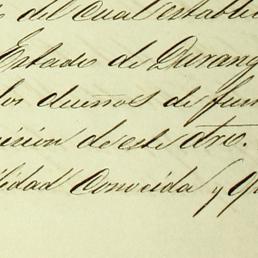 del cual estable
Estado de Durang
los dueños de fun
icion de este dro.
lidad conocida y q